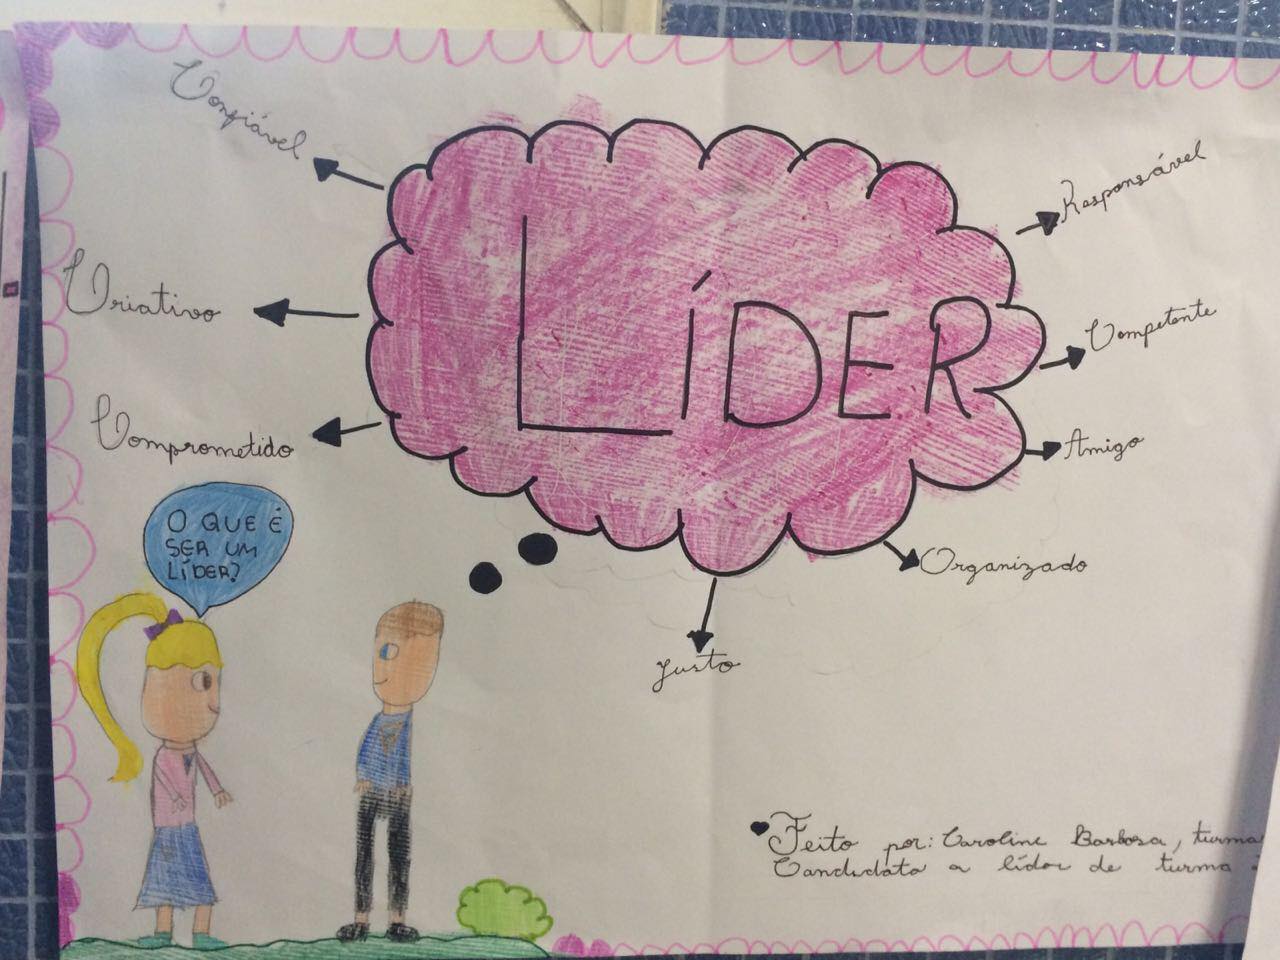 Confiável
Responsável
Criativo
LÍDER
Competente
Comprometido
Amigo
O QUE É
SER UM
LÍDER?
Organizado
Justo
Feito por: Caroline Barbosa, turma
Candidata a líder de turma